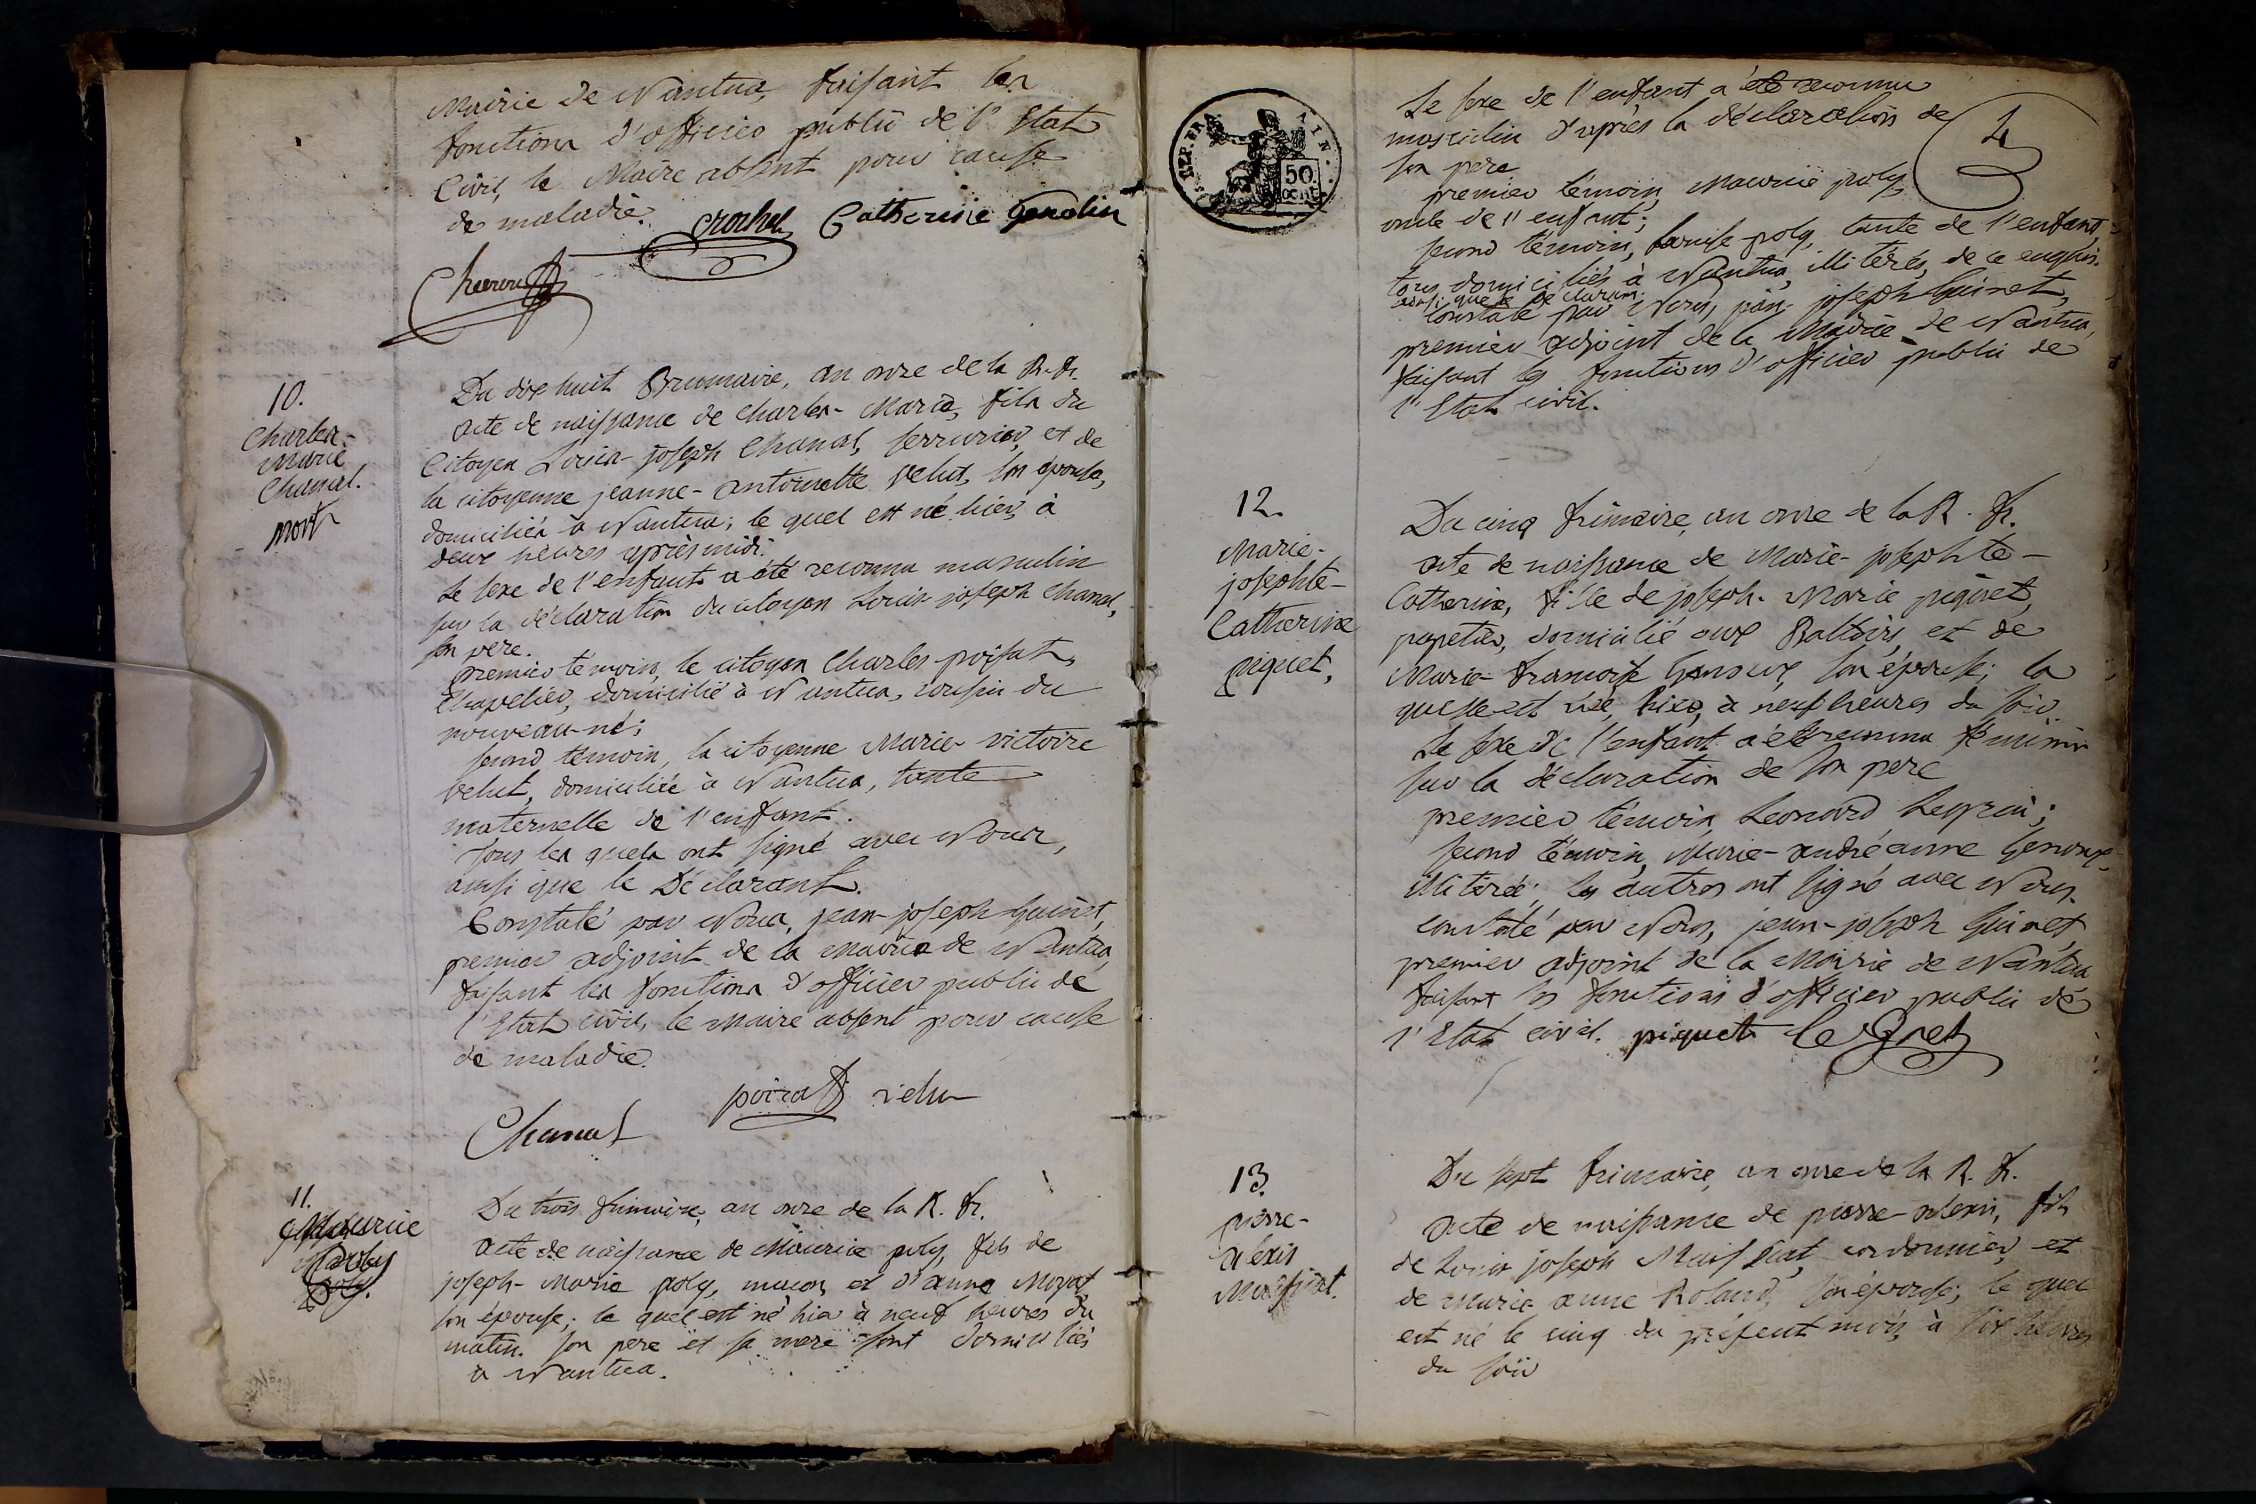 Mairie de Nantua, faisant les
fonctions d'officier public de l'Etat
Civil, le Maire absent pour cause
de maladie.
Crochet Catherine
10.
Charles-
Marie
Chanal.
mort
Du dix huit Brumaire, an onze de la R. fr.
acte de naissance de Charles-Marie, fils du
Citoyen Louis-joseph Chanal, serrurier, et de
la citoyenne jeanne-antoinette velut, son épouse,
domiciliés à Nantua; le quel est né hier, à
deux heures après midi.
Le sexe de l'enfant a été reconnu masculin
sur la déclaration du citoyen Louis joseph Chanal,
son père.
premier témoin, le citoyen Charles poisat,
Chapelier, domicilié à Nantua, cousin du
nouveau-né;
second témoin, la citoyenne Marie-victoire
velut, domiciliée à Nantua, tante
maternelle de l'enfant.
tous les quels ont signé avec Nous,
ainsi que le Déclarant.
Constaté par Nous, jean-joseph Guinet,
premier adjoint de la Mairie de Nantua,
faisant les fonctions d'officier public de
l'Etat civil, le Maire absent pour cause
de maladie.
poizat velu
Chanal
11.
Maurice
poly.
Du trois frimaire, an onze de la R. fr.
acte de naissance de Maurice poly, fils de
joseph-Marie poly, maçon et d'anne Moyat
son épouse; le quel est né hier à neuf heures du
matin. Son père et sa mère sont domiciliés
à Nantua.
REP. FRA.
50
CENT
4
Le sexe de l'enfant a été reconnu
masculin d'après la déclaration de
son père
premier témoin, Maurice poly,
oncle de l'enfant;
second témoin, Louise poly, tante de l'enfant,
tous domiciliés à Nantua, illiterés, de ce enquis.
ainsi que le déclarant.
Constaté par Nous, jean joseph Guinet,
premier adjoint de la Mairie de Nantua,
faisant les fonctions d'officier public de
l'Etat civil.
12.
Marie-
josephte-
Catherine
piquet.
Du cinq frimaire, an onze de la R. fr.
acte de naissance de Marie-josephte-
Catherine, fille de joseph-Marie piquet,
papetier, domicilié aux Battoirs, et de
Marie-françoise son épouse; la
quelle est née, hier, à neuf heures du soir.
Le sexe de l'enfant a été reconnu féminin
sur la déclaration de son père
premier témoin, Leonard
second témoin, Marie-andréanne
illiterée; les autres ont signé avec Nous.
constaté par Nous, jean-joseph Guinet
premier adjoint de la Mairie de Nantua
faisant les fonctions d'officier public de
l'Etat civil. piquet
13.
pierre-
alexis
Maissiat.
Du sept frimaire, an onze de la R. fr.
acte de naissance de pierre-alexis, fils
de Louis joseph Maissiat, cordonnier, et
de Marie anne Roland, son épouse; le quel
est né le cinq du présent mois, à six heures
du soir